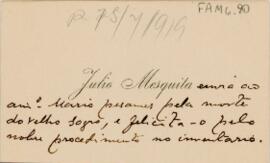 P. 75/7/919
FAM 6.90
Julio Mesquita envia ao
amº. Mario pesames pela morte
do velho sogro, e felicita-o pelo
nobre procedimento no inventario.